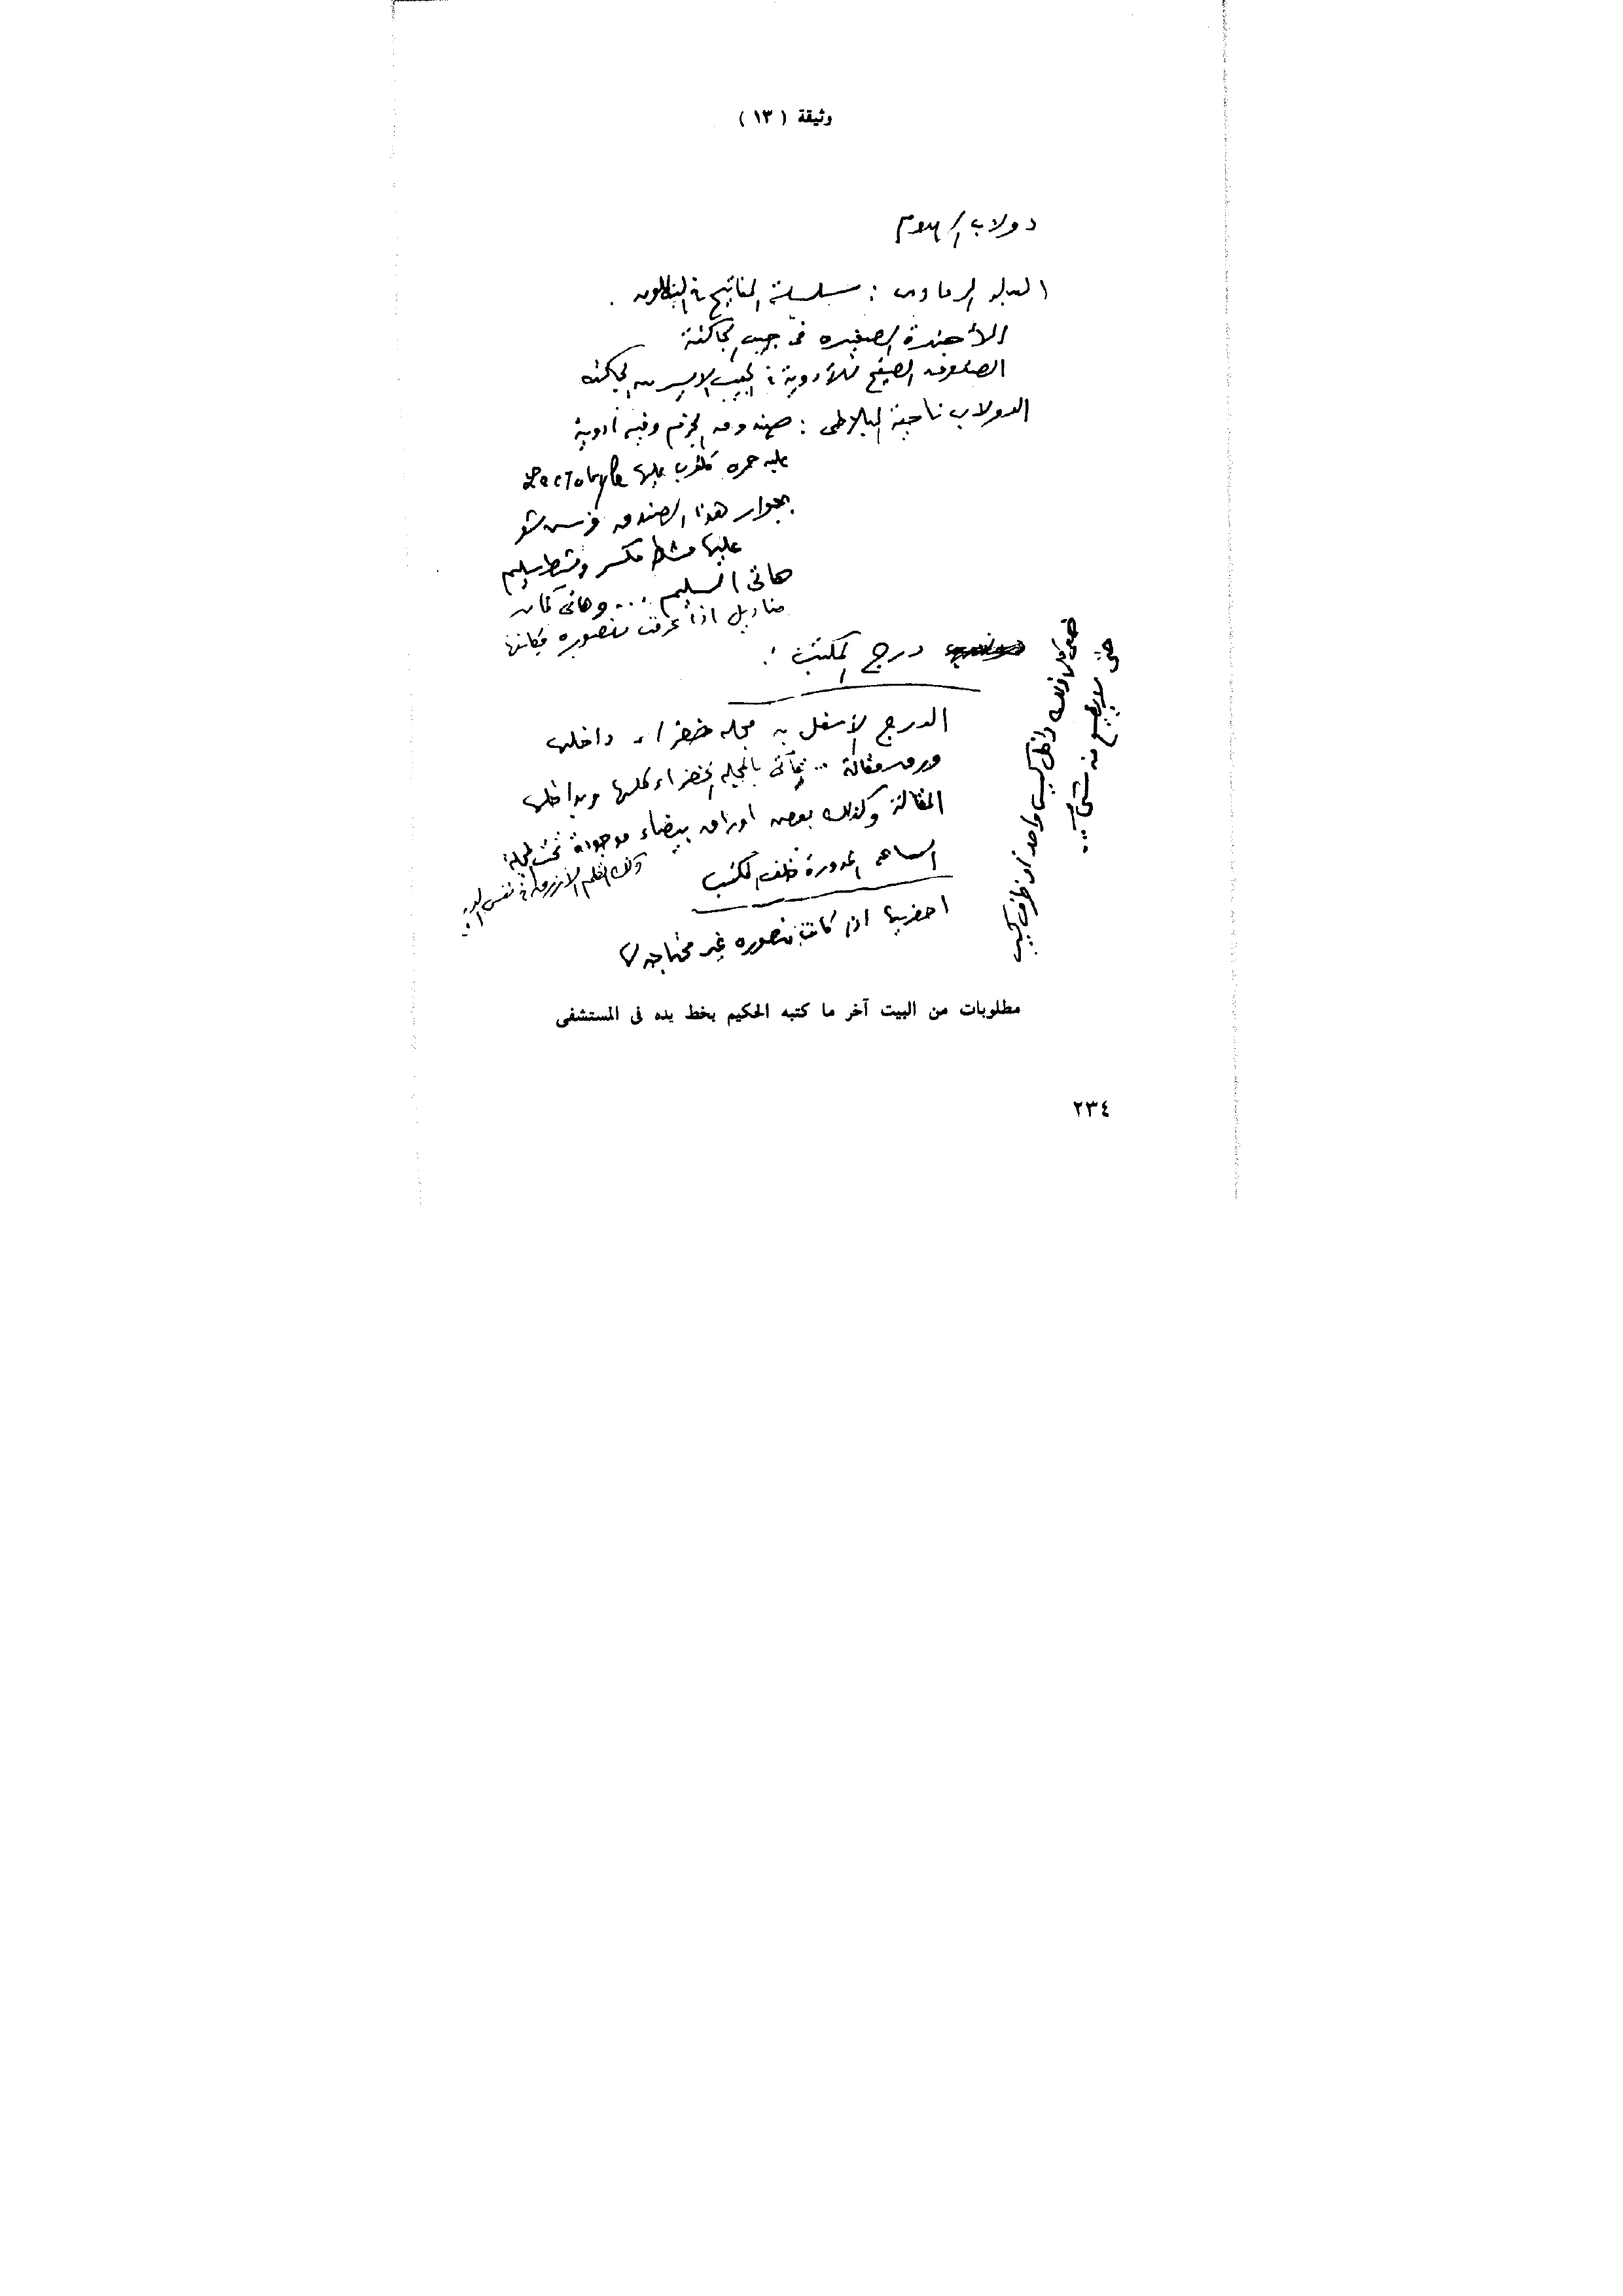 وثيقة ( ١٣ )
دولاب الهدوم
البدلة الرمادى : سلسلة المفاتيح فى البنطلون .
الأجندة الصغيره فى جيب الجاكتة
الصندوق الصفيح للأدوية فى الجيب الايسر من الجاكته
الدولاب ناحية البلاطى : صندوق الجزم وفيه أدوية
علبه حمره مكتوب عليها
بجوار هذا الصندوق
عليها مشط مكسر ومشط سليم
هاتى السليم ... وهاتى كمان
مناديل اذا عرفت منصوره مكانها
درج المكتب :
الدرج الأسفل به مجله خضراء داخلها
ورق مقالة ... تأتى بالمجله الخضراء كلها وبداخلها
المقالة وكذلك بعض اوراق بيضاء موجودة تحت المجلة
وكذلك القلم الأزرق فى نفس الدرج
الساعه المدورة خلف المكتب
احضريها اذا كانت منصوره غير محتاجه لها
ضعى كل ذلك داخل كيس واحد أو ظرف كبير
حتى لا يضيع منه شىء ...
مطلوبات من البيت آخر ما كتبه الحكيم بخط يده فى المستشفى
٢٣٤